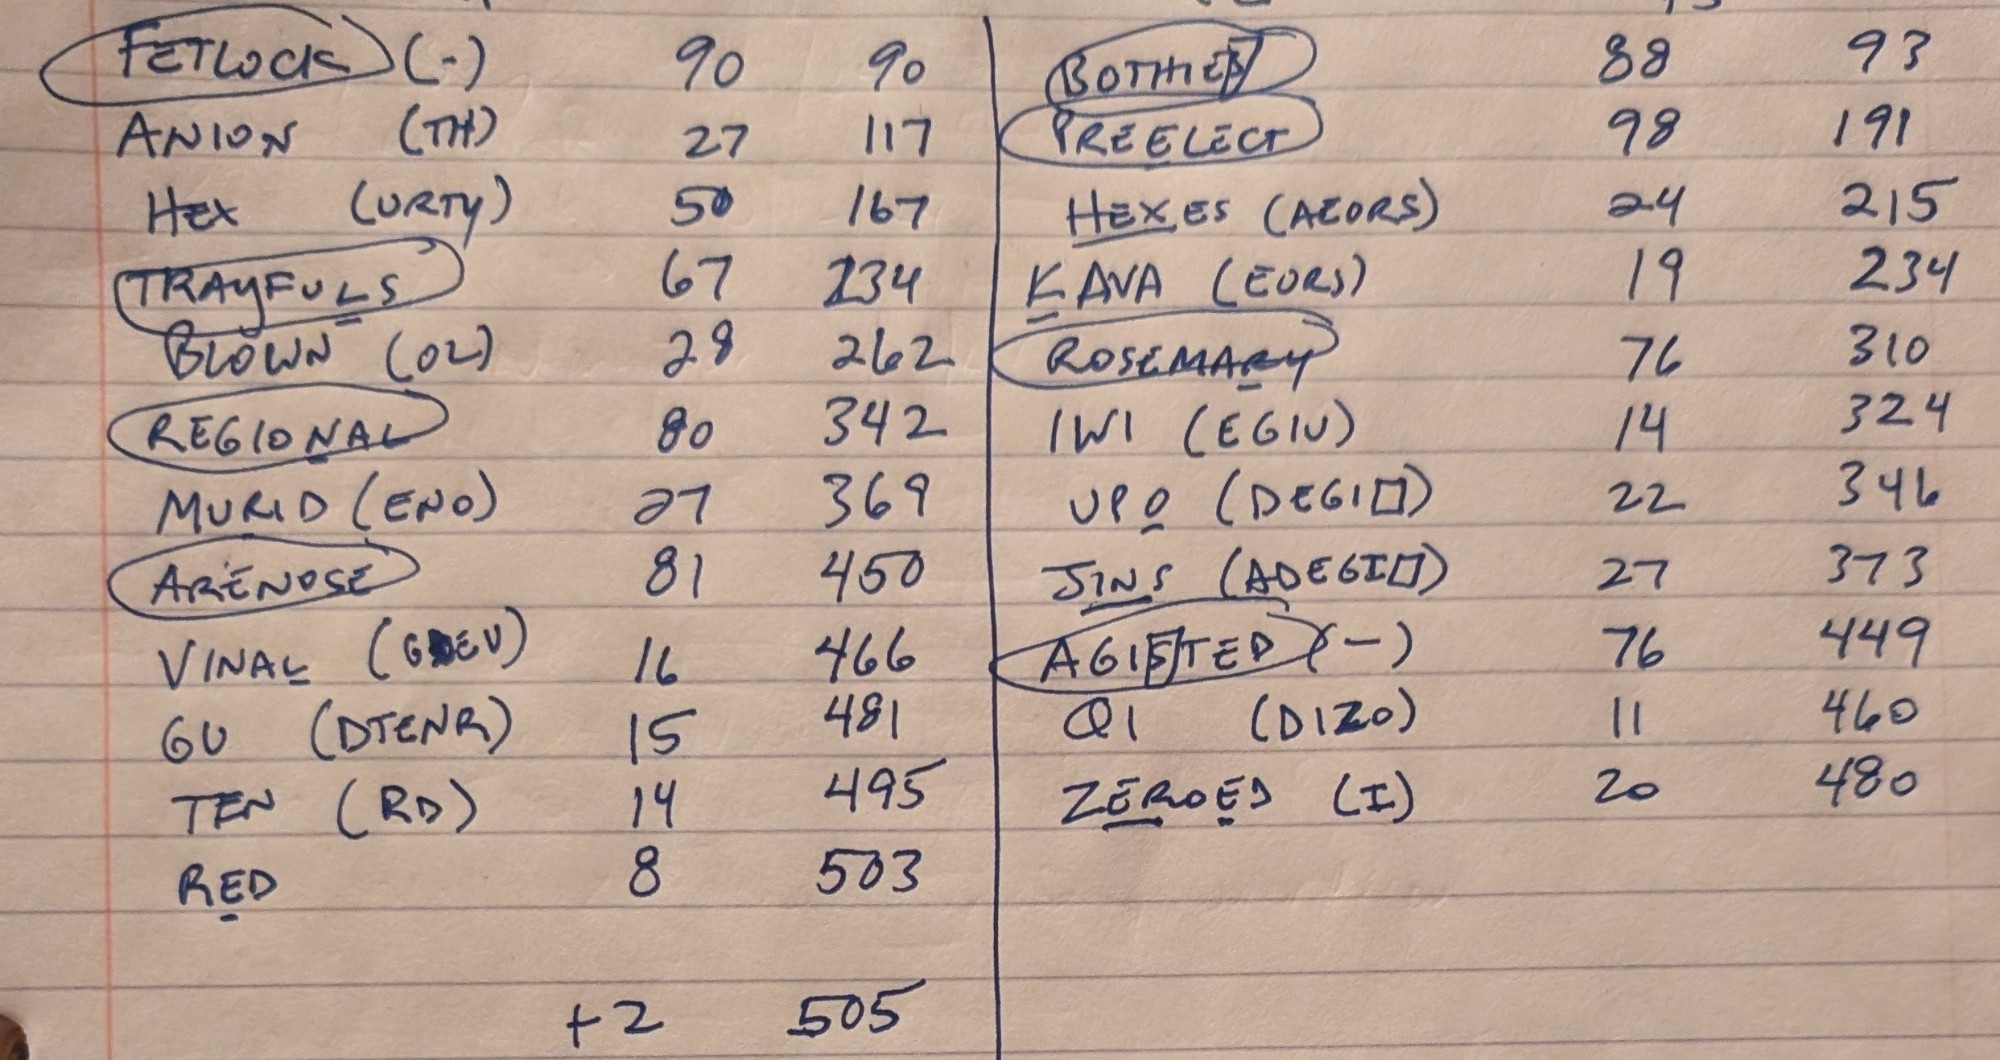 FETLOCK (-) 90 90
ANION (TH) 27 117
HEX (URTY) 50 167
TRAYFULS 67 234
BLOWN (OL) 28 262
REGIONAL 80 342
MURID (ENO) 27 369
ARENOSE 81 450
VINAL (GDEU) 16 466
GU (DTENR) 15 481
TEN (RD) 14 495
RED 8 503
+2 505
BOTHIES 88 93
PREELECT 98 191
HEXES (AEORS) 24 215
KAVA (EORS) 19 234
ROSEMARY 76 310
IWI (EGIU) 14 324
UPO (DEGI□) 22 346
JINS (ADEGI□) 27 373
AGISTED (-) 76 449
QI (DIZO) 11 460
ZEROED (I) 20 480